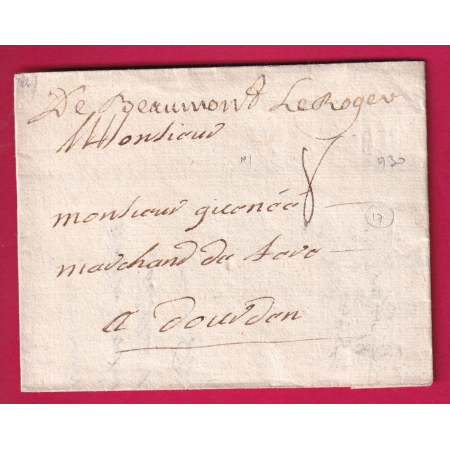 De Beaumont Le Roger
Monsieur
8
930
monsieur guenée
17
marchand du
a dourdan